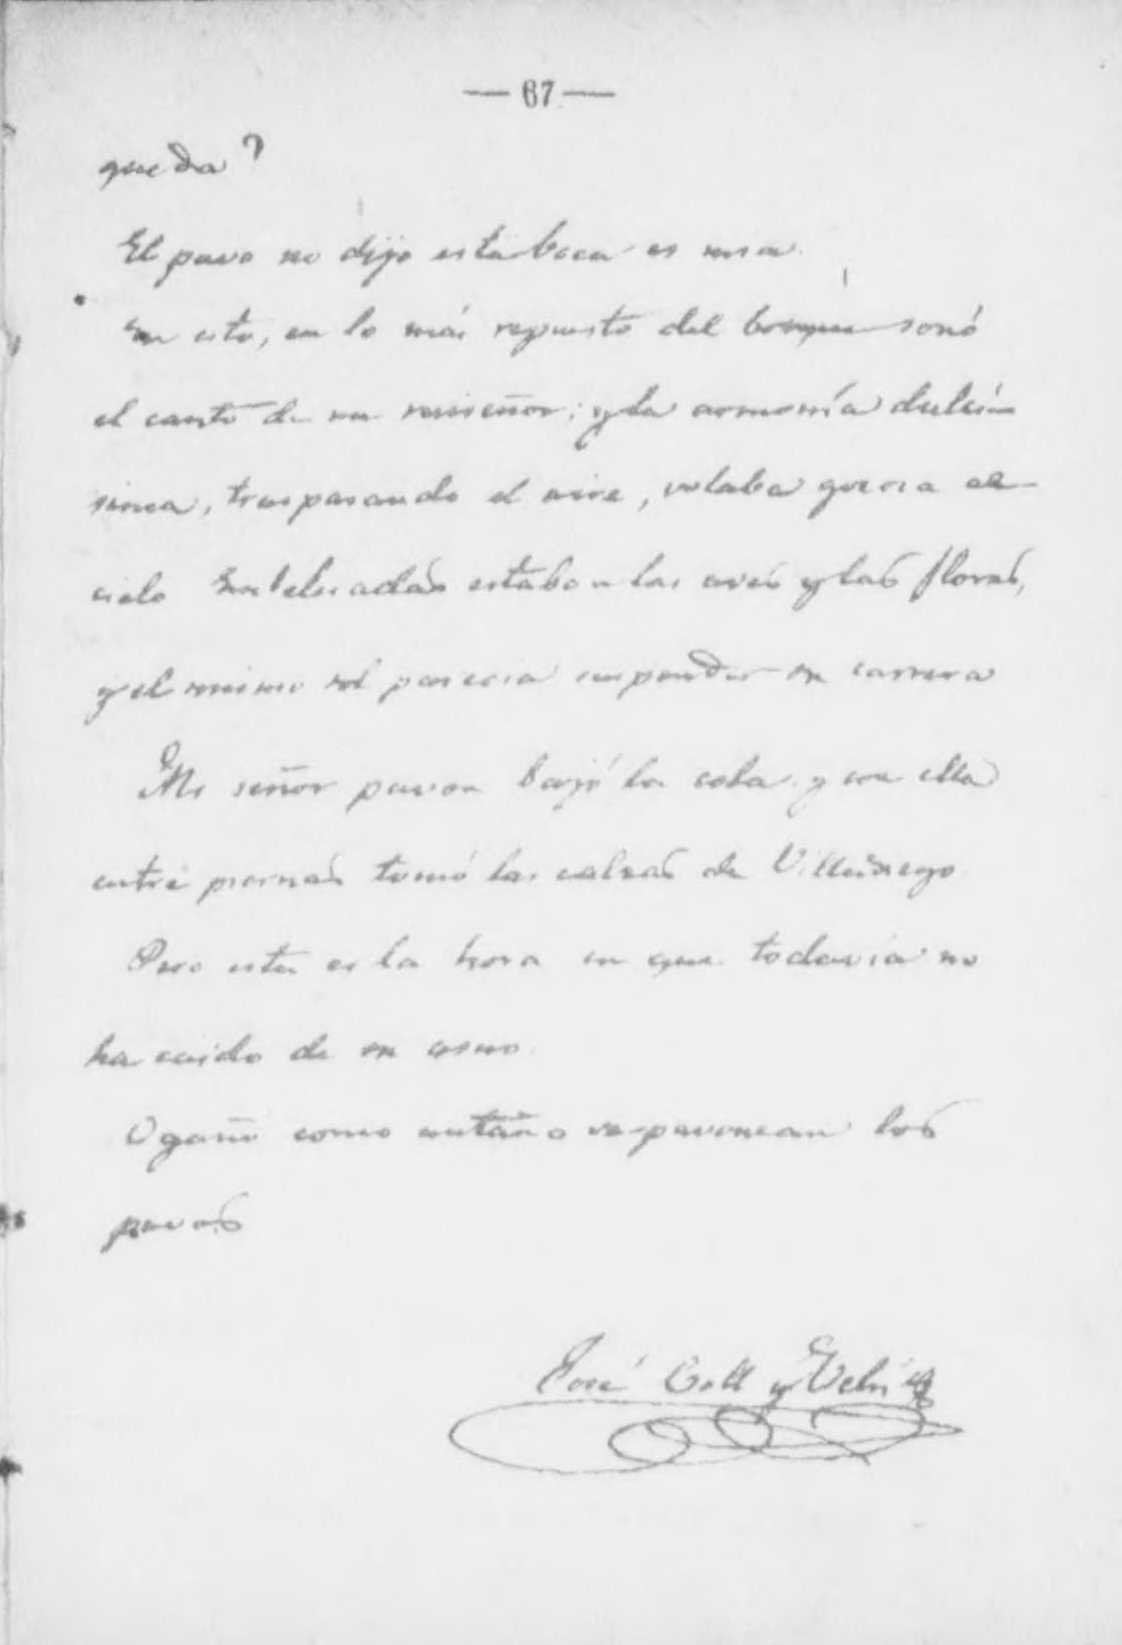 — 67 —
queda?
El pavo no dijo esta boca es mia.
En esto, en lo más repuesto del bosque sonó
el canto de un ruiseñor; y la armonía dulcí-
sima, traspasando el aire, volaba gozosa al
cielo Embelesadas estaban las aves y las flores,
y el mismo sol parecia suspender su carrera
Mi señor pavon bajó la cola y con ella
entre piernas tomó las calzas de Villadiego.
Pero esta es la hora en que todavia no
ha caido de su asno.
Ogaño como antaño se pavonean los
pavos
José Coll y Vehí